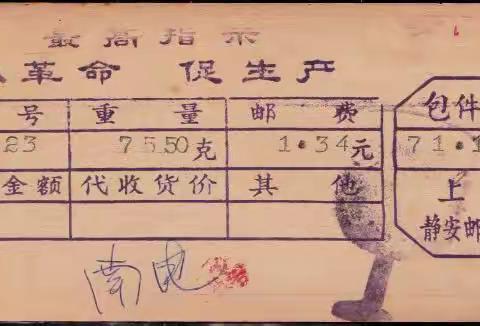 最高指示
革命 促生产
号 重量 邮费 包件
23 7550克 1.34元 71.1
金额 代收货价 其他 上
静安邮
南电